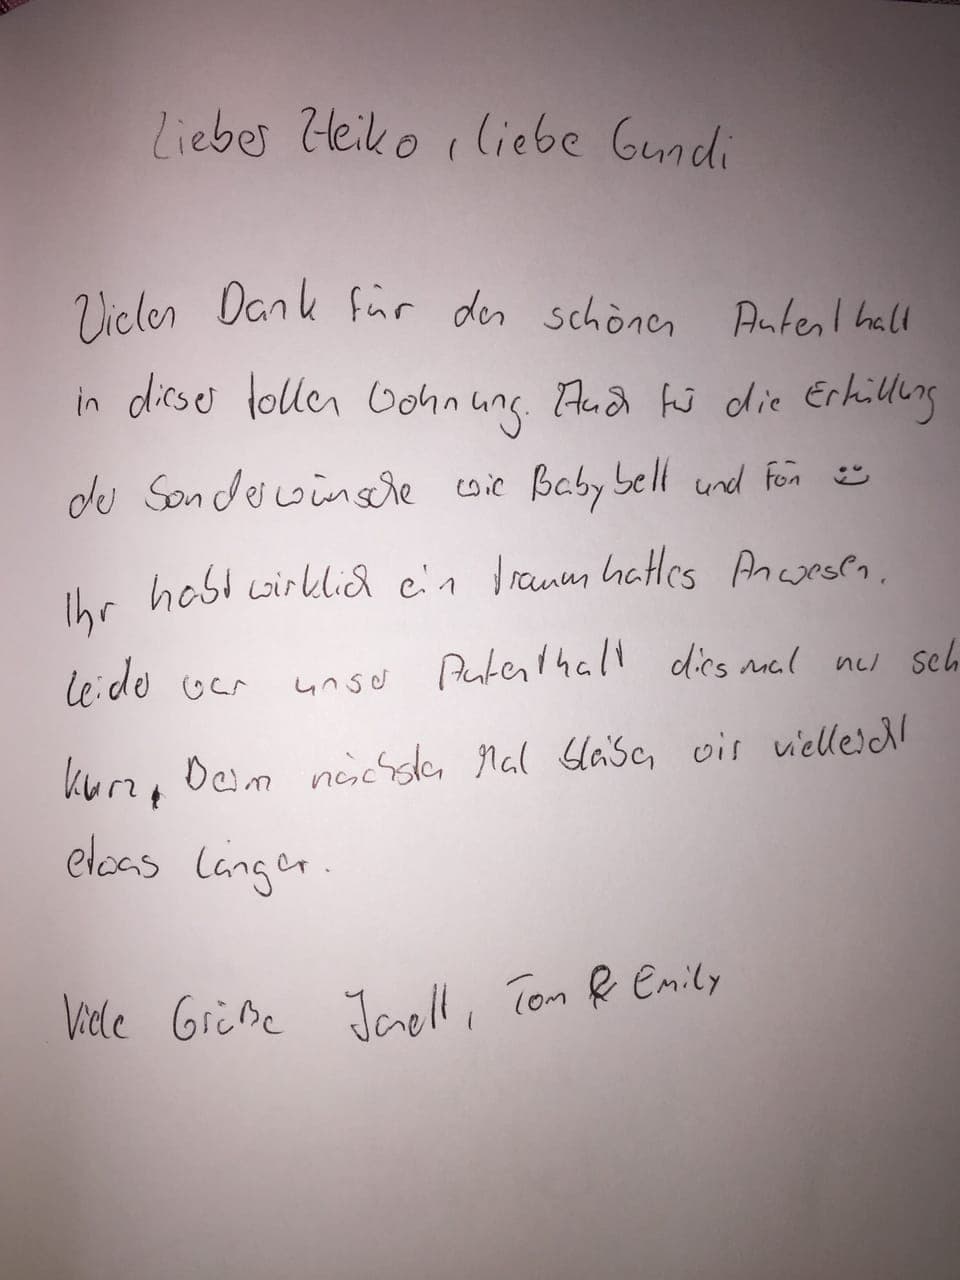 Lieber Heiko, liebe Gundi
Vielen Dank für den schönen Aufenthalt
in dieser tollen Wohnung. Auch für die Erfüllung
der Sonderwünsche wie Babybell und Fön ☺
Ihr habt wirklich ein traumhaftes Anwesen.
Leider war unser Aufenthalt diesmal nur seh
kurz, Beim nächsten Mal bleiben wir vielleicht
etwas länger.
Viele Grüße Jonell, Tom & Emily